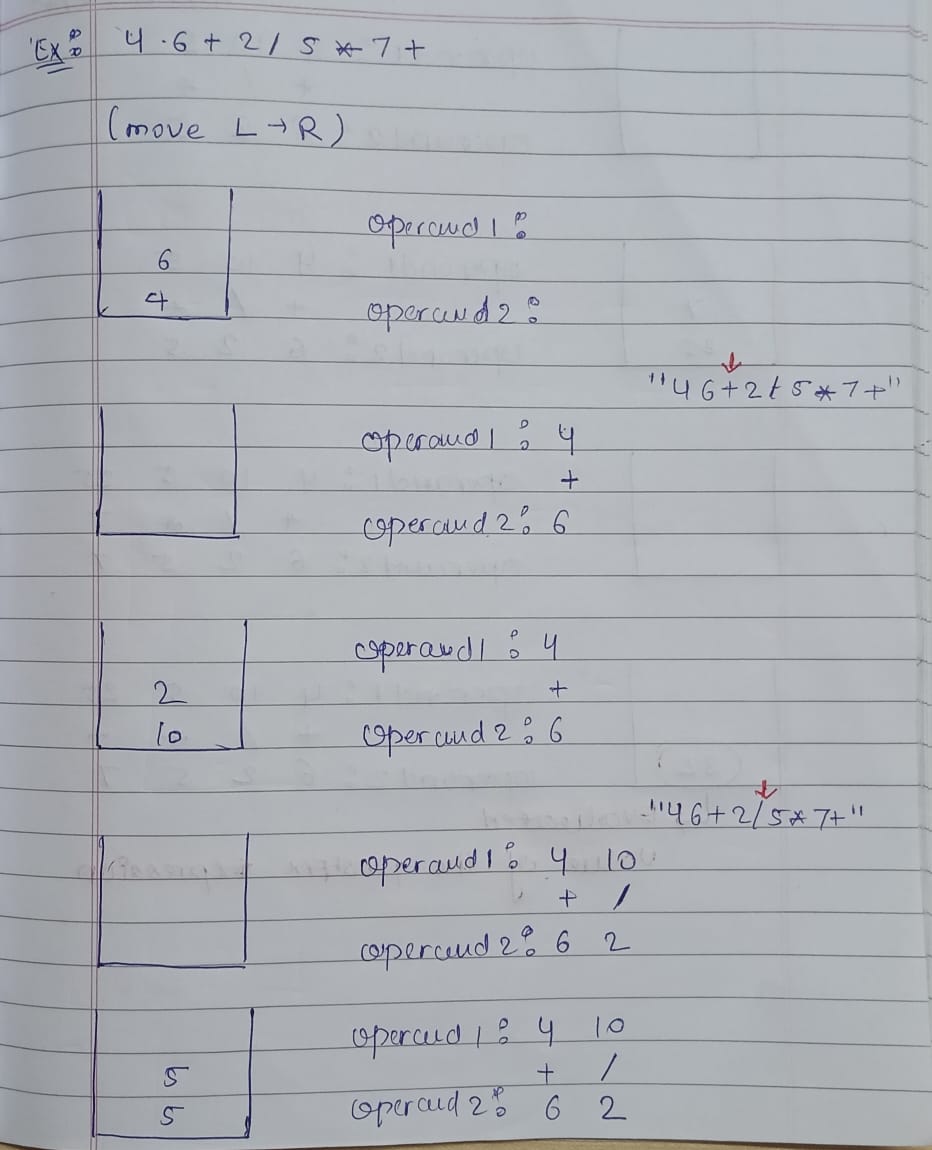 Ex: 4 · 6 + 2 / 5 * 7 +
(move L → R)
6
4
operand 1 :
operand 2 :
"4 6 + 2 / 5 * 7 +"
operand 1 : 4
+
operand 2 : 6
operand 1 : 4
2
+
10
operand 2 : 6
"4 6 + 2 / 5 * 7 +"
operand 1 : 4 10
+ /
operand 2 : 6 2
operand 1 : 4 10
5
+ /
5
operand 2 : 6 2